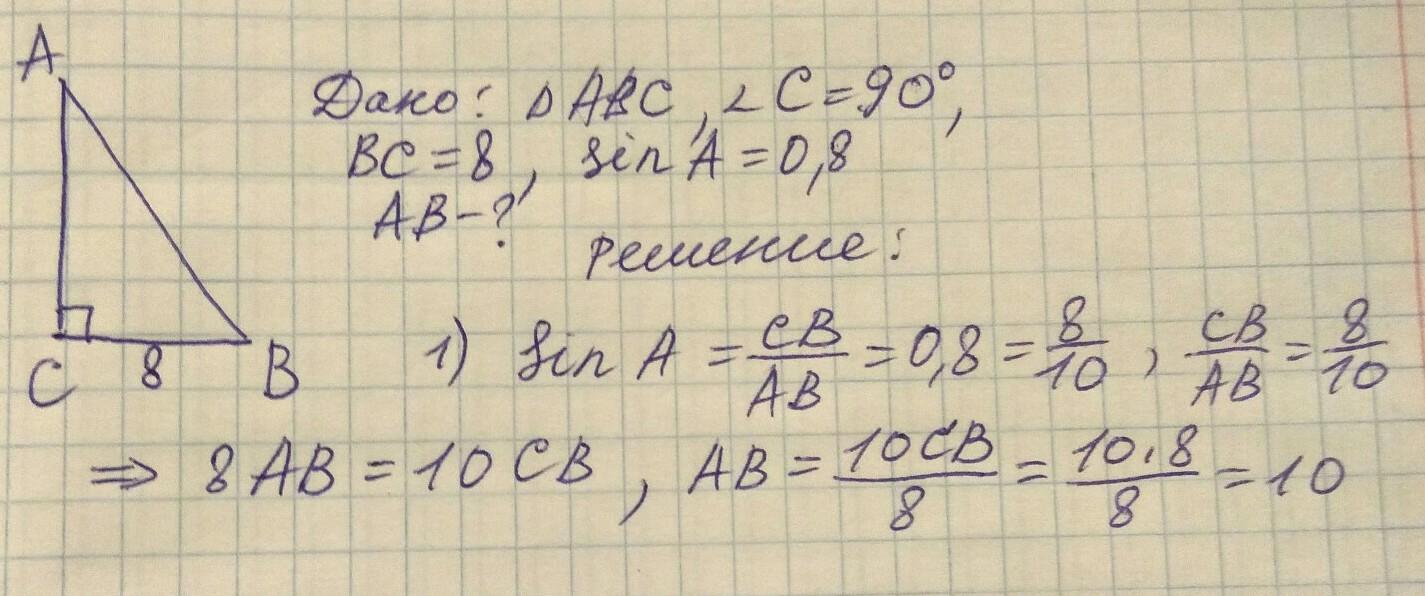 A
Дано: △ABC, ∠C=90°,
BC=8, sin A=0,8
AB-?
решение:
C 8 B
1) sin A = CB/AB = 0,8 = 8/10, CB/AB = 8/10
⇒ 8AB = 10CB, AB = 10CB/8 = 10·8/8 = 10